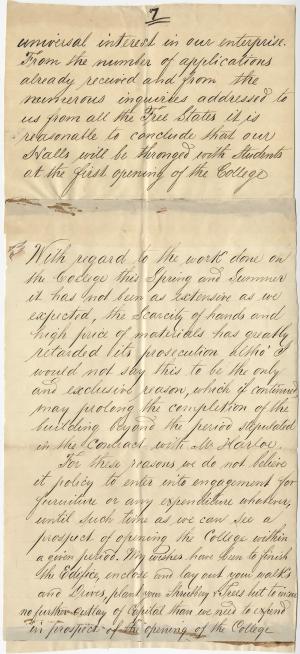 7
universal interest in our enterprise.
From the number of applications
already received and from the
numerous inquiries addressed to
us from all the Free States it is
reasonable to conclude that our
Halls will be thronged with Students
at the first opening of the College
With regard to the work done on
the College this Spring and Summer
it has not been as extensive as we
expected, the Scarcity of hands and
high price of materials has greatly
retarded its prosecution altho' I
would not say this to be the only
and exclusive reason, which if continued,
may prolong the completion of the
building beyond the period stipulated
in the Contract with Mr Harloe.
For these reasons we do not believe
it policy to enter into engagement for
furniture or any expenditure whatever,
until such time as we can see a
prospect of opening the College within
a given period. My wishes have been to finish
the Edifice, enclose and lay out your walks
and Drives, plant your Shrubbery & Trees but to incur
no further outlay of Capital than we need to expend
in prospect of the opening of the College